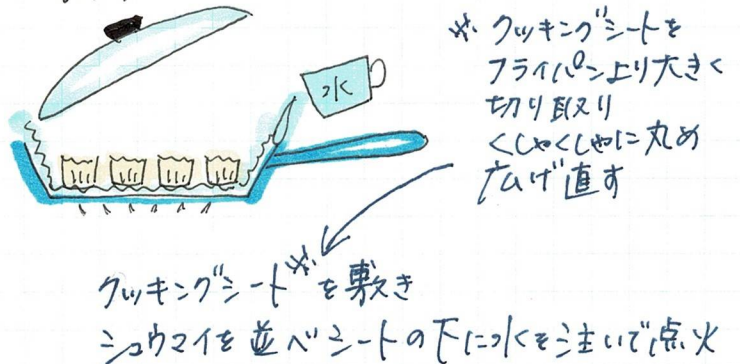 水
※ クッキングシートを
フライパンより大きく
切り取り
くしゃくしゃに丸め
広げ直す
クッキングシート※を敷き
シュウマイを並べシートの下に水を注いで点火